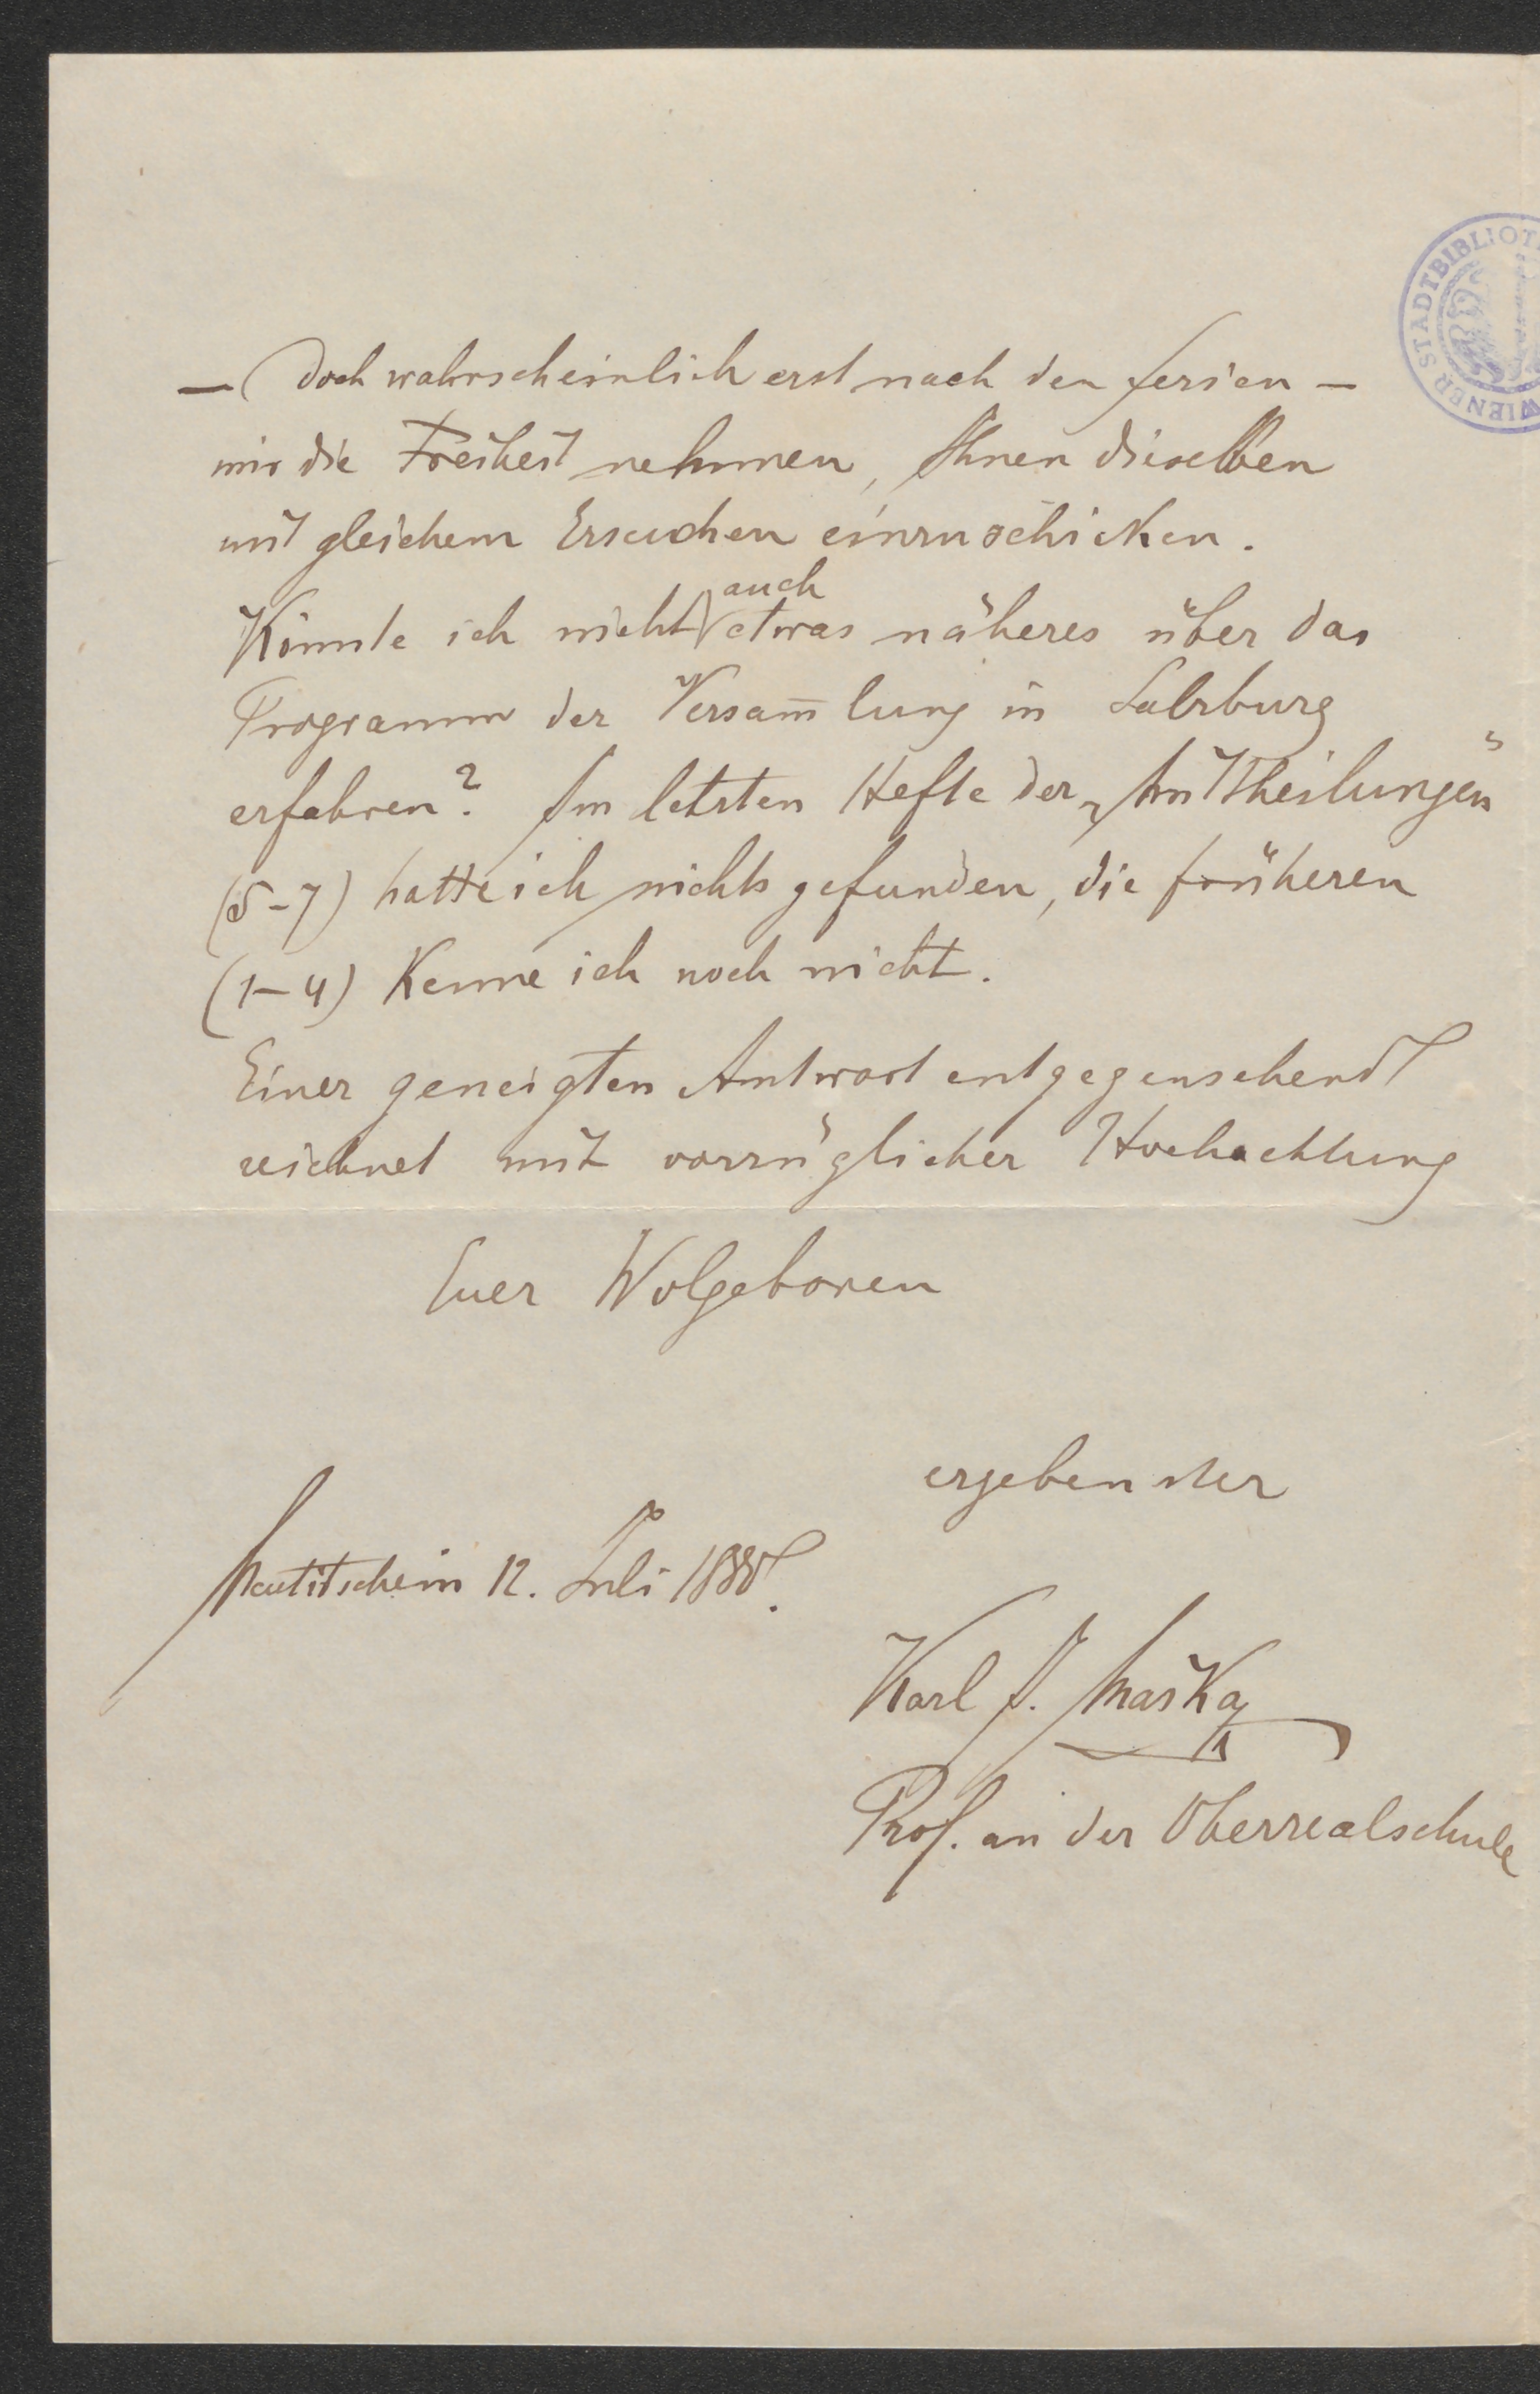 — doch wahrscheinlich erst nach den Ferien —
mir die Freiheit nehmen, Ihnen dieselben
mit gleichem Ersuchen einzuschicken.
Könnte ich nicht auch etwas näheres über das
Programm der Versam̅lung in Salzburg
erfahren? Im letzten Hefte der „Mittheilungen“
(5-7) hatte ich nichts gefunden, die früheren
(1-4) kenne ich noch nicht.
Einer geneigten Antwort entgegensehend
zeichnet mit vorzüglicher Hochachtung
Euer Wolgeboren
ergebenster
Neutitschein 12. Juli
Karl J. Maška
Prof. an der Oberrealschule
WIENER STADTBIBLIOT